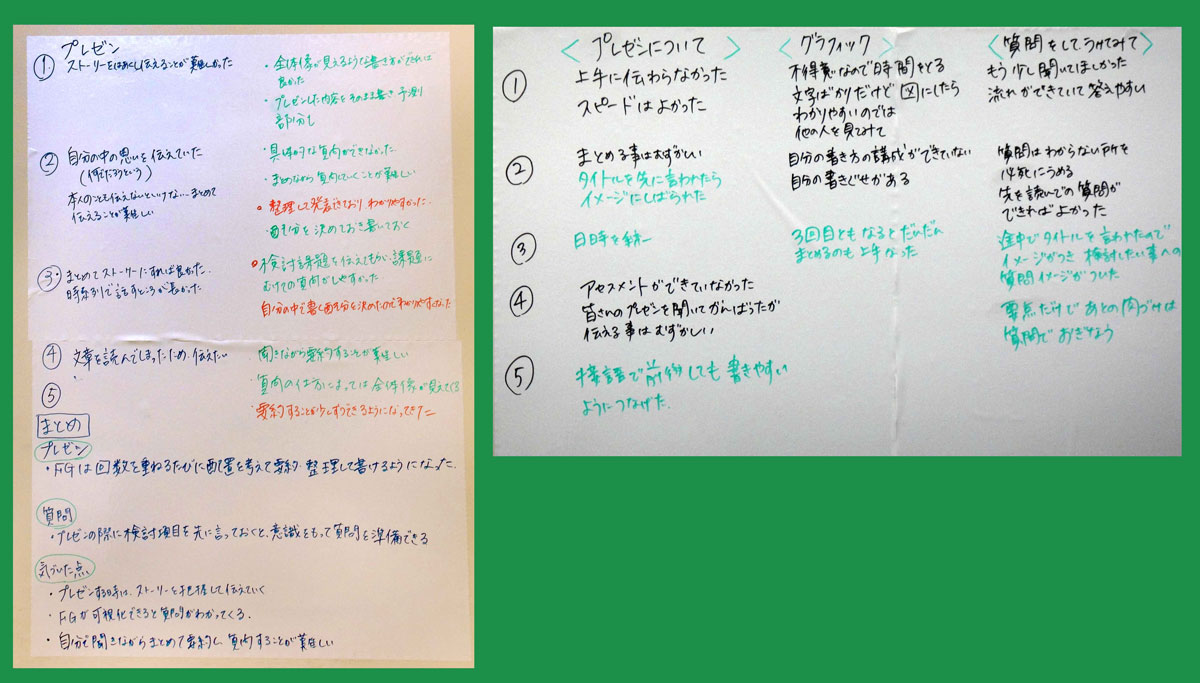 プレゼン
① ストーリーをはあくし伝えることが難しかった
・全体像が見えるような書き方ができれば
良かった
・プレゼンした内容をそのまま書き 予測
部分も
② 自分の中の思いを伝えていた
(何だろうという)
本人のことも伝えないといけない…まとめて
伝えることが難しい
・具体的な質問ができなかった
・まとめながら質問していくことが難しい
・整理して発表されており わかりやすかった
・配分を決めておき書いておく
③・まとめてストーリーにすれば良かった
時系列で話すところが長かった
・検討課題を伝えてもらい、課題に
むけての質問がしやすかった
自分の中で書く配分を決めたのでわかりやすくなった
④ 文章を読んでしまったため、伝えたい
聞きながら要約することが難しい
⑤
・質問の仕方によっては全体像が見えてくる
・要約することが少しずつできるようになってきた
まとめ
プレゼン
・FGは回数を重ねるたびに配置を考えて要約・整理して書けるようになった。
質問
・プレゼンの際に検討項目を先に言っておくと、意識をもって質問を準備できる
気づいた点
・プレゼンする時は、ストーリーを把握して伝えていく
・FGが可視化できると質問がわかってくる。
・自分で聞きながらまとめて要約し、質問することが難しい
<プレゼンについて>
<グラフィック>
<質問をしてうけてみて>
① 上手に伝わらなかった
スピードはよかった
不得意なので時間をとる
文字ばかりだけど図にしたら
わかりやすいのでは
他の人を見てみて
もう少し聞いてほしかった
流れができていて答えやすい
② まとめる事はむずかしい
タイトルを先に言われたら
イメージにしばられた
自分の書き方の構成ができていない
自分の書きぐせがある
質問はわからない所を
必死にうめる
先を読んでの質問が
できればよかった
③ 日時を統一
3回目ともなるとだいたい
まとめるのも上手なった
途中でタイトルを言われたので
イメージがつき 検討したい事への
質問イメージがついた
④ アセスメントができていなかった
皆さんのプレゼンを聞いてがんばったが
伝える事はむずかしい
要点だけであとの肉づけは
質問でおぎなう
⑤ 接語で前後しても書きやすい
ようにつなげた.